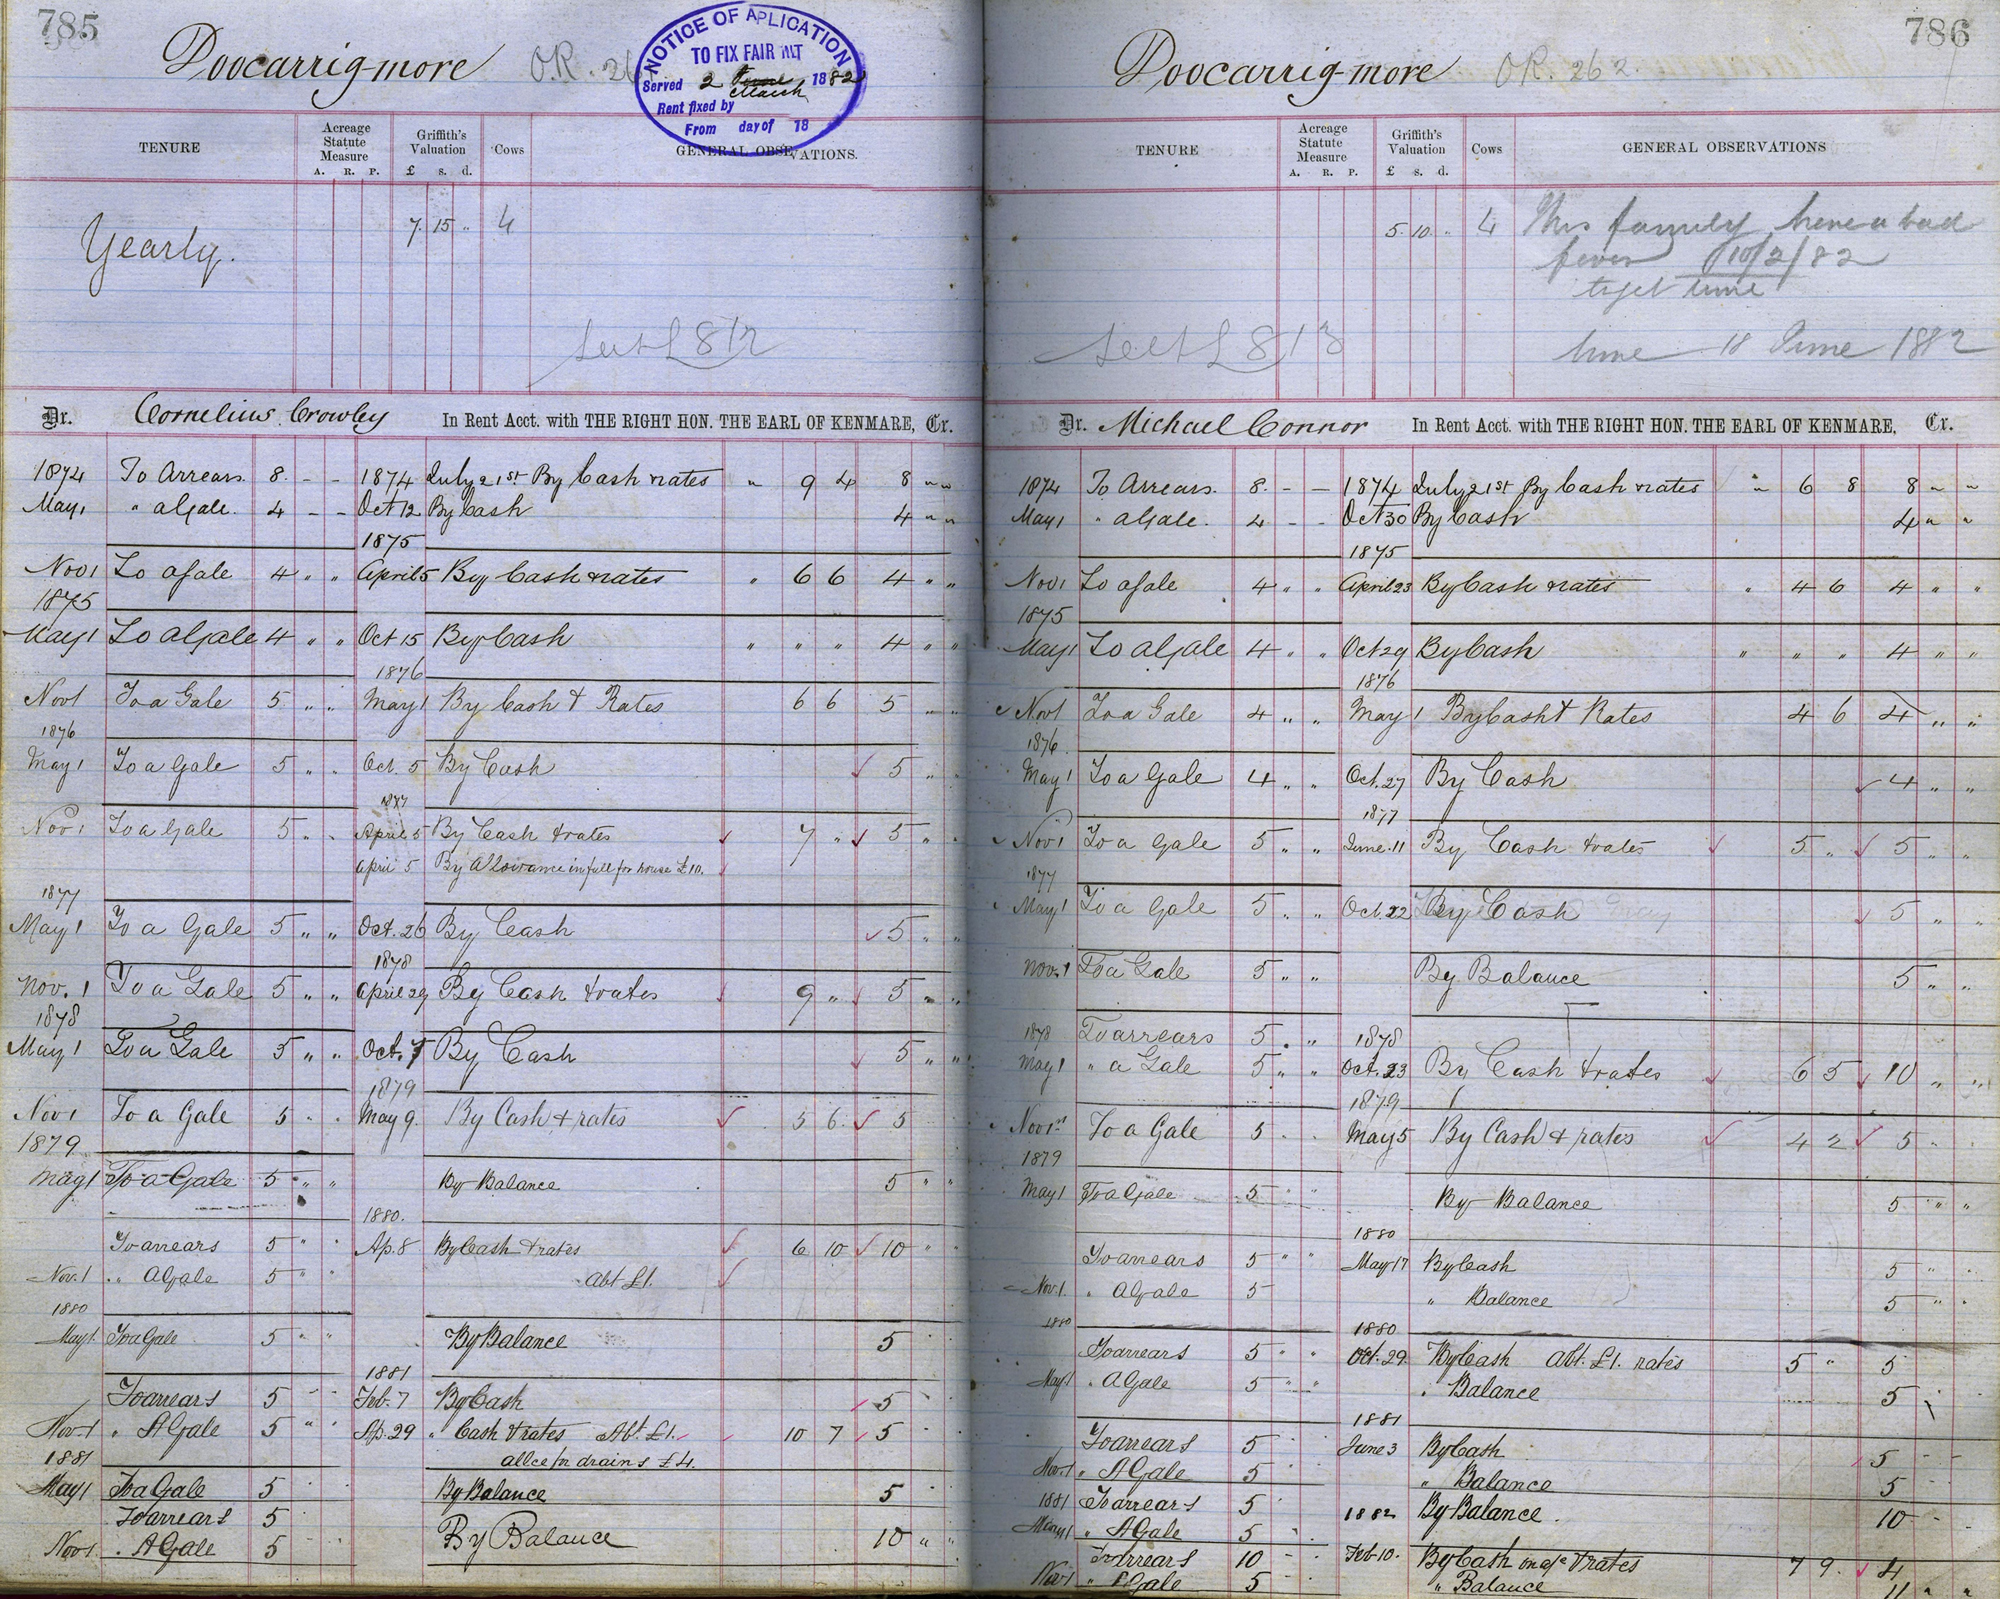 785
Doocarrig-more O.R. 26
NOTICE OF APLICATION
TO FIX FAIR
Served 2 March 1882
Rent fixed by
From day of 18
TENURE Acreage Statute Measure Griffith's Valuation Cows GENERAL OBSERVATIONS.
A. R. P. £ s. d.
Yearly. 7. 15 " 4
£8/12
Dr. Cornelius Crowley In Rent Acct. with THE RIGHT HON. THE EARL OF KENMARE, Cr.
1874 To Arrears. 8. - - 1874 July 21st By Cash & rates " 9 4 8 " "
May 1 " a Gale. 4 - - Oct 12 By Cash 4 " "
1875
Nov 1 To a Gale 4 " " April 5 By Cash & rates " 6 6 4 " "
1875
May 1 To a Gale 4 " " Oct 15 By Cash " " " 4 " "
1876
Nov 1 To a Gale 5 " " May 1 By Cash & Rates 6 6 5 " "
1876
May 1 To a Gale 5 " " Oct. 5 By Cash 5 " "
1877
Nov 1 To a Gale 5 " " April 5 By Cash & rates 7 " 5 " "
April 5 By Allowance in full for house £10.
1877
May 1 To a Gale 5 " " Oct. 26 By Cash 5 " "
1878
Nov. 1 To a Gale 5 " " April 29 By Cash & rates 9 " 5 " "
1878
May 1 To a Gale 5 " " Oct. 7 By Cash 5 " "
1879
Nov 1 To a Gale 5 " " May 9. By Cash & rates 5 6 5
1879
May 1 To a Gale 5 " " By Balance 5 " "
1880.
To arrears 5 " " Ap. 8 By Cash & rates 6 10 10 " "
Nov. 1 " A Gale 5 " " Abt £1.
1880
May 1. To a Gale 5 " " By Balance 5
1881
To arrears 5 Feb. 7 By Cash 5
Nov. 1 " A Gale 5 " " Ap. 29 " Cash & rates Abt. £1. 10 7 5
1881 allce for drains £4.
May 1 To a Gale 5 By Balance 5
To arrears 5
Nov 1 " A Gale 5 By Balance 10 " "
786
Doocarrig-more OR. 262.
TENURE Acreage Statute Measure Griffith's Valuation Cows GENERAL OBSERVATIONS
A. R. P. £ s. d.
5. 10. " 4 This family have a bad
fever 10/2/82
to get time
£8/13 time 18 June 1882
Dr. Michael Connor In Rent Acct. with THE RIGHT HON. THE EARL OF KENMARE, Cr.
1874 To Arrears. 8. - - 1874 July 21st By Cash & rates " 6 8 8 " "
May 1 " a Gale. 4 - - Oct 30 By Cash 4 " "
1875
Nov 1 To a Gale 4 " " April 23 By Cash & rates " 4 6 4 " "
1875
May 1 To a Gale 4 " " Oct 29 By Cash " " " 4 " "
1876
Nov 1 To a Gale 4 " " May 1 By Cash & Rates 4 6 4 " "
1876.
May 1 To a Gale 4 " " Oct. 27 By Cash 4 " "
1877
Nov 1 To a Gale 5 " " June 11 By Cash & rates 5 " 5 " "
1877
May 1 To a Gale 5 " " Oct. 22 By Cash 5 " "
Nov. 1 To a Gale 5 " " By Balance 5 " "
1878 To arrears 5 " " 1878
May 1 " a Gale 5 " " Oct. 23 By Cash & rates 6 5 10 " "
1879
Nov 1st To a Gale 5 May 5 By Cash & rates 4 2 5
1879
May 1 To a Gale 5 " " By Balance 5 " "
1880
To arrears 5 " " May 17 By Cash 5 " "
Nov. 1. " A Gale 5 " Balance 5 " "
1880 1880
To arrears 5 " " Oct. 29. By Cash Abt. £1. rates 5 " 5
May 1 " A Gale 5 " " " Balance 5
1881
To arrears 5 June 3 By Cash 5
Nov. 1 " A Gale 5 " Balance 5
1881 To arrears 5 1882 By Balance. 10
May 1 " A Gale 5
To arrears 10 Feb 10. By Cash on a/c & rates 7 9. 4
Nov 1 " A Gale 5 " Balance 11 " "